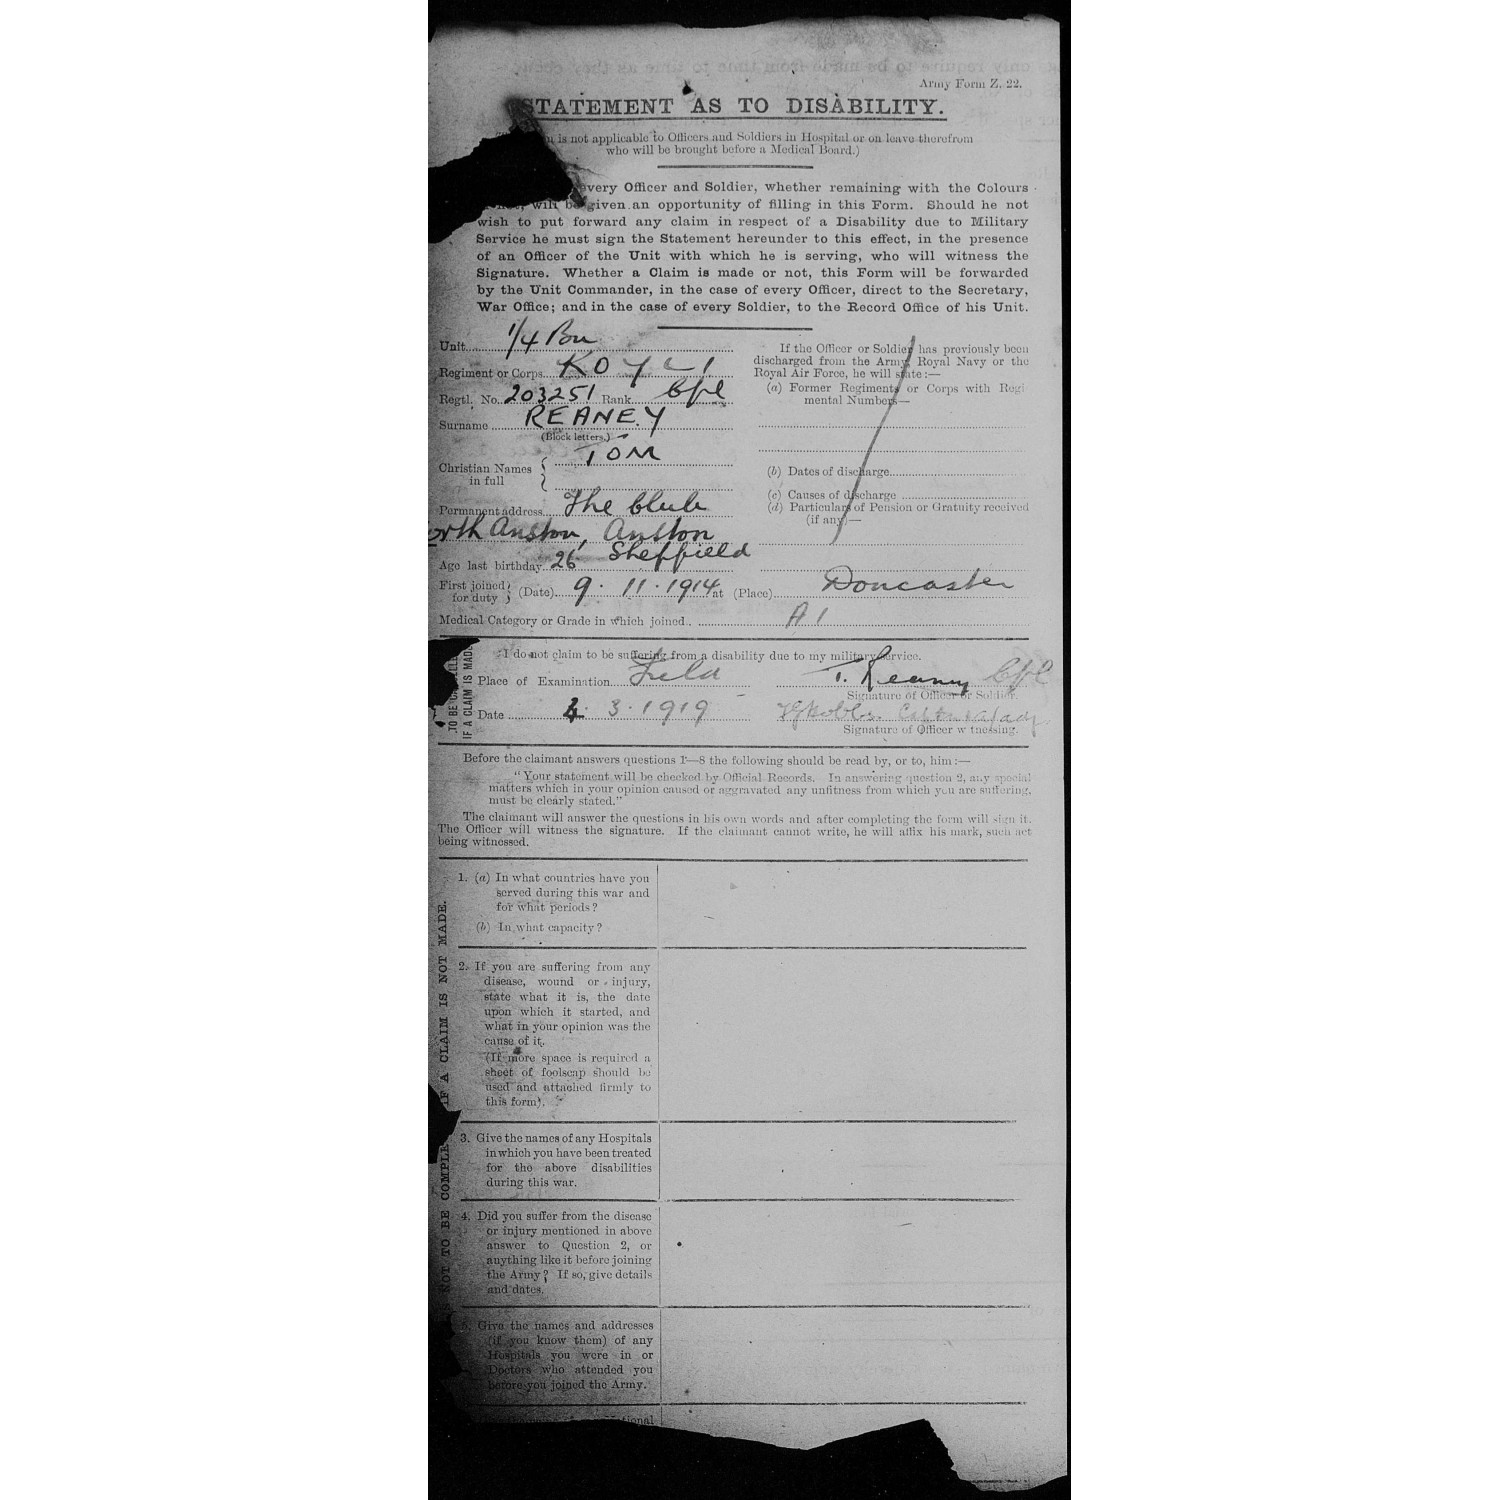 Army Form Z. 22.
STATEMENT AS TO DISABILITY.
is not applicable to Officers and Soldiers in Hospital or on leave therefrom
who will be brought before a Medical Board.)
every Officer and Soldier, whether remaining with the Colours
will be given an opportunity of filling in this Form. Should he not
wish to put forward any claim in respect of a Disability due to Military
Service he must sign the Statement hereunder to this effect, in the presence
of an Officer of the Unit with which he is serving, who will witness the
Signature. Whether a Claim is made or not, this Form will be forwarded
by the Unit Commander, in the case of every Officer, direct to the Secretary,
War Office; and in the case of every Soldier, to the Record Office of his Unit.
Unit 1/4 Bn
Regiment or Corps KOYLI
Regtl. No. 203251 Rank Cpl
Surname REANEY
(Block letters.)
Christian Names TOM
in full
Permanent address The Club
North Anston, Anston
Sheffield
Age last birthday 26
If the Officer or Soldier has previously been
discharged from the Army, Royal Navy or the
Royal Air Force, he will state:—
(a) Former Regiments or Corps with Regi
mental Numbers—
(b) Dates of discharge
(c) Causes of discharge
(d) Particulars of Pension or Gratuity received
(if any)—
First joined for duty (Date) 9. 11. 1914 at (Place) Doncaster
Medical Category or Grade in which joined A1
TO BE
IF A CLAIM IS MADE
I do not claim to be suffering from a disability due to my military service.
Place of Examination Field T. Reaney Cpl
Signature of Officer or Soldier.
Date 4. 3. 1919
Signature of Officer witnessing.
Before the claimant answers questions 1—8 the following should be read by, or to, him:—
"Your statement will be checked by Official Records. In answering question 2, any special
matters which in your opinion caused or aggravated any unfitness from which you are suffering,
must be clearly stated."
The claimant will answer the questions in his own words and after completing the form will sign it.
The Officer will witness the signature. If the claimant cannot write, he will affix his mark, such act
being witnessed.
NOT TO BE COMPLE IF A CLAIM IS NOT MADE.
1. (a) In what countries have you
served during this war and
for what periods?
(b) In what capacity?
2. If you are suffering from any
disease, wound or injury,
state what it is, the date
upon which it started, and
what in your opinion was the
cause of it.
(If more space is required a
sheet of foolscap should be
used and attached firmly to
this form).
3. Give the names of any Hospitals
in which you have been treated
for the above disabilities
during this war.
4. Did you suffer from the disease
or injury mentioned in above
answer to Question 2, or
anything like it before joining
the Army? If so, give details
and dates.
5. Give the names and addresses
(if you know them) of any
Hospitals you were in or
Doctors who attended you
before you joined the Army.